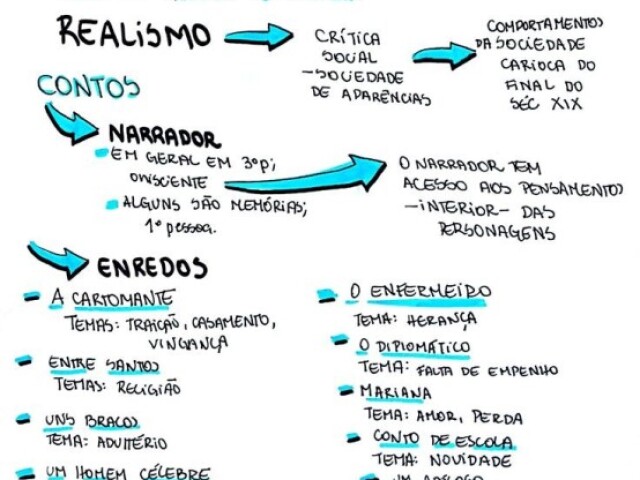 REALISMO
CRÍTICA
SOCIAL
-SOCIEDADE
DE APARÊNCIAS
COMPORTAMENTOS
DA SOCIEDADE
CARIOCA DO
FINAL DO
SÉC XIX
CONTOS
NARRADOR
EM GERAL EM 3ªp;
ONISCIENTE
ALGUNS SÃO MEMÓRIAS;
1ª pessoa.
O NARRADOR TEM
ACESSO AOS PENSAMENTOS
-INTERIOR- DAS
PERSONAGENS
ENREDOS
A CARTOMANTE
TEMAS: TRAIÇÃO, CASAMENTO,
VINGANÇA
ENTRE SANTOS
TEMAS: RELIGIÃO
UNS BRAÇOS
TEMA: ADULTÉRIO
UM HOMEM CÉLEBRE
O ENFERMEIRO
TEMA: HERANÇA
O DIPLOMÁTICO
TEMA: FALTA DE EMPENHO
MARIANA
TEMA: AMOR, PERDA
CONTO DE ESCOLA
TEMA: NOVIDADE
UM APÓLOGO